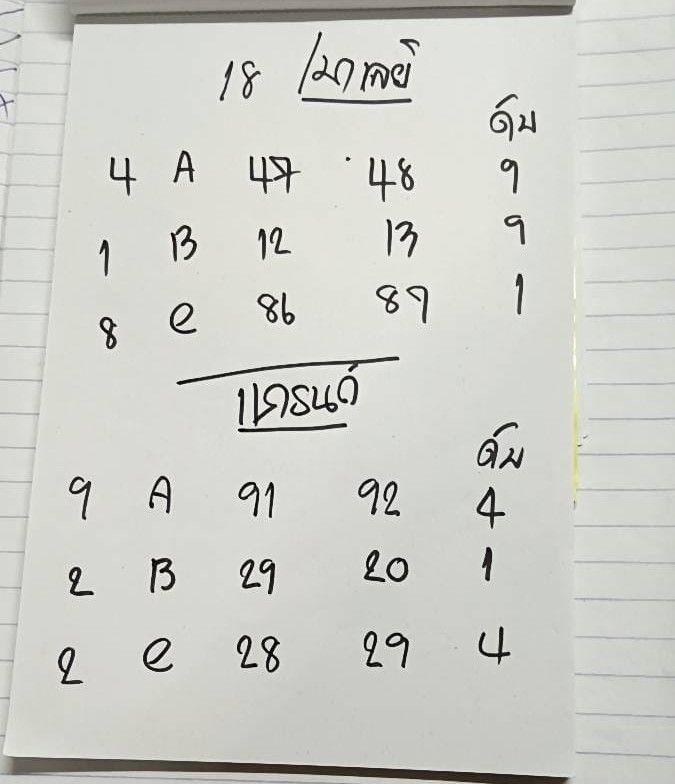 18 มาเลย์
ดับ
4 A 47 48 9
1 B 12 13 9
8 e 86 87 1
แกรนด์
ดับ
9 A 91 92 4
2 B 29 20 1
2 e 28 29 4